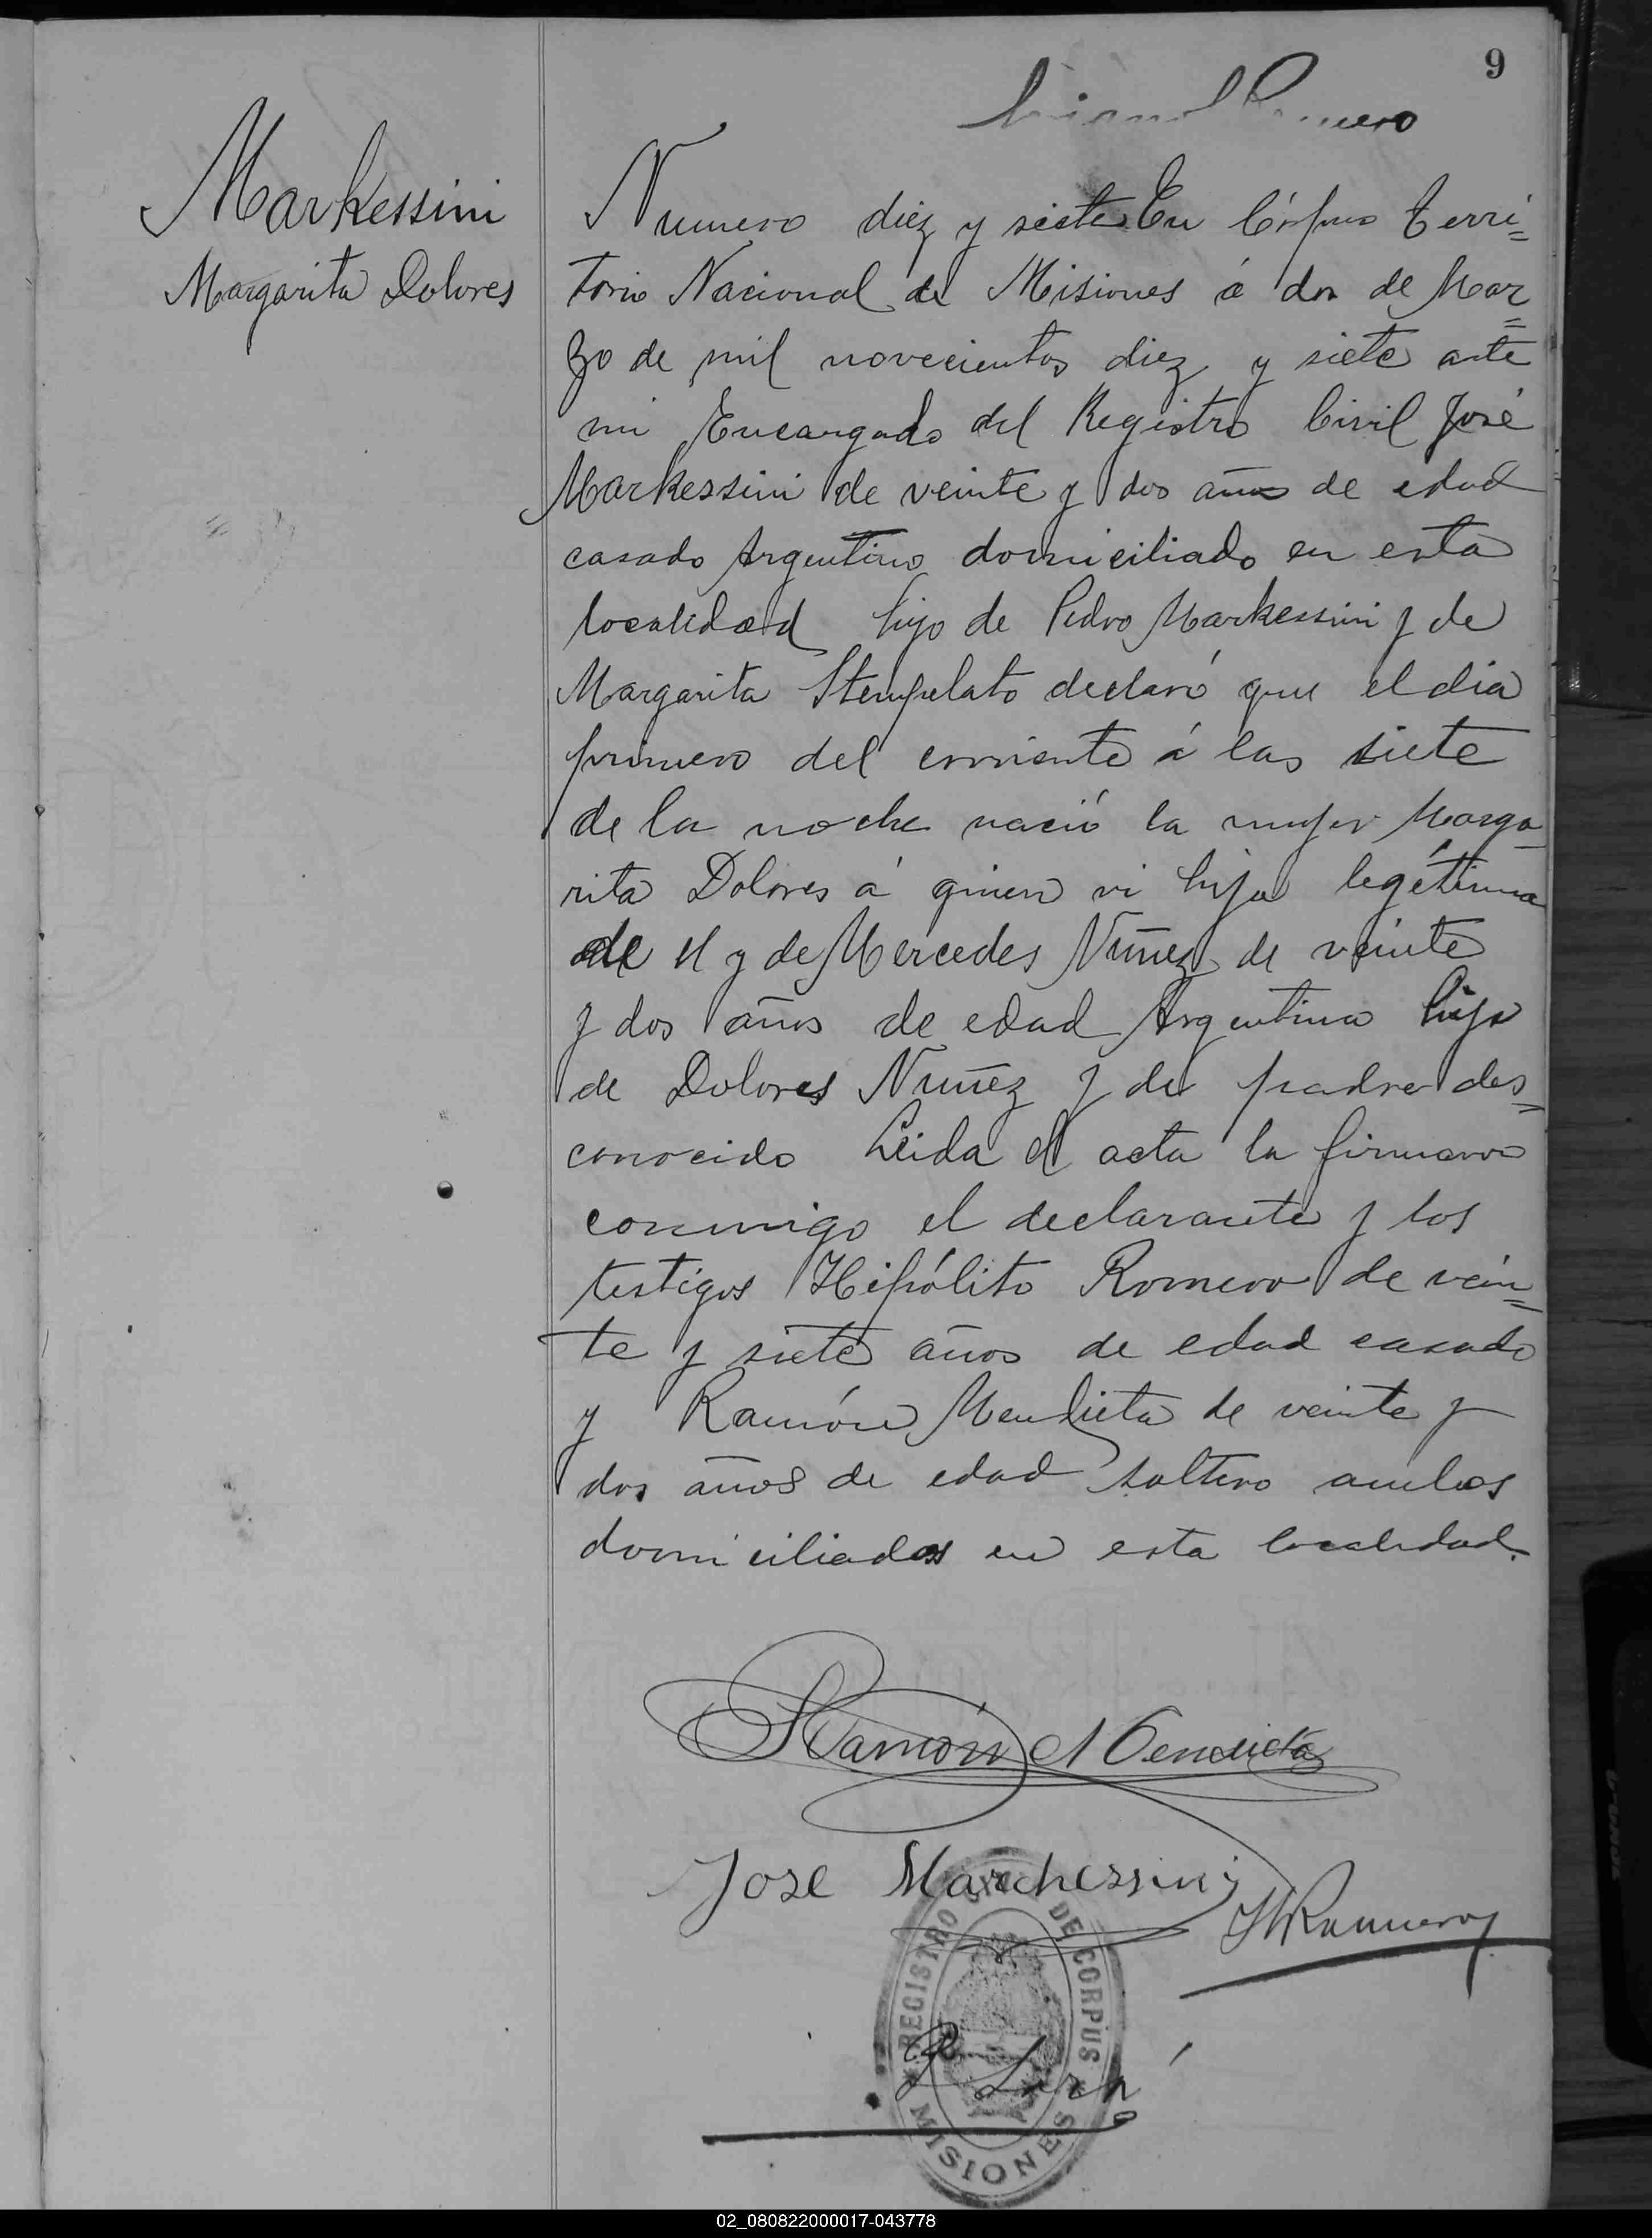 9
Markessini
Margarita Dolores
Numero diez y siete En Córpus Terri=
torio Nacional de Misiones á dos de Mar=
zo de mil novecientos diez y siete ante
mi Encargado del Registro Civil José
Markessini de veinte y dos años de edad
casado Argentino domiciliado en esta
localidad hijo de Pedro Markessini y de
Margarita Stempelato declaró que el dia
primero del corriente á las siete
de la noche nació la mujer Marga-
rita Dolores á quien vi hija legítima
de el y de Mercedes Nuñez de veinte
y dos años de edad Argentina hija
de Dolores Nuñez y de padre des=
conocido Leida el acta la firmaron
conmigo el declarante y los
testigos Hipólito Romero de vein=
te y siete años de edad casado
y Ramón Mendieta de veinte y
dos años de edad soltero ambos
domiciliados en esta localidad.
Ramón Mendieta
Jose Marchessini
H Romero
REGISTRO DE CORPUS
MISIONES
02_080822000017-043778